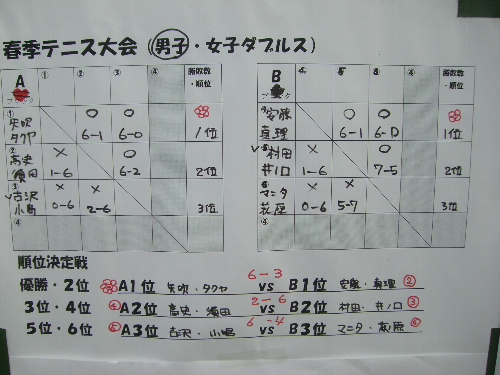 春季テニス大会 (男子・女子ダブルス)
A ブロック ① ② ③ ④ 勝敗数・順位
① 矢吹 タクヤ ○ 6-1 ○ 6-0 1位
② 高史 濱田 × 1-6 ○ 6-2 2位
③ 古沢 小島 × 0-6 × 2-6 3位
④
B ブロック 勝敗数・順位
安藤 真理 ○ 6-1 ○ 6-0 1位
村田 井ノ口 × 1-6 ○ 7-5 2位
マニタ 萩原 × 0-6 × 5-7 3位
④
順位決定戦
優勝・2位 A1位 矢吹・タクヤ 6-3 vs B1位 安藤・真理 ②
3位・4位 ④ A2位 高史・濱田 2-6 vs B2位 村田・井ノ口 ③
5位・6位 ⑤ A3位 古沢・小島 6-4 vs B3位 マニタ・萩原